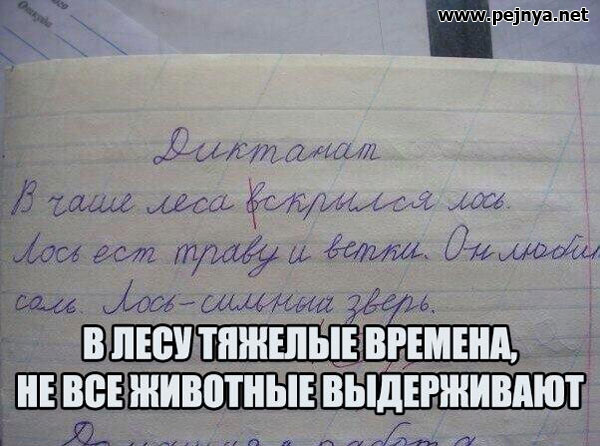 www.pejnya.net
Откуда
Диктанат
В чаше леса вскрылся лось.
Лось ест траву и ветки. Он любит
соль. Лось-сильный зверь.
В ЛЕСУ ТЯЖЕЛЫЕ ВРЕМЕНА,
НЕ ВСЕ ЖИВОТНЫЕ ВЫДЕРЖИВАЮТ
Домашняя работа